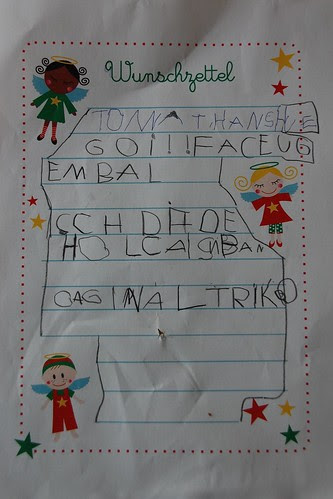 Wunschzettel
TONNATHANSHUE
GOI!!!FACEUG
EMBAL
CCH DADE
HOLCAIGNBAN
OAGINALTRIKO